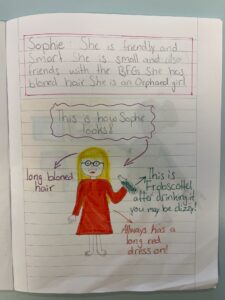 Sophie: She is friendly and
Smart. She is small and also
friends with the BFG. She has
bloned hair. She is an Orphaned girl
This is how Sophe
looks!
long bloned
hair
This is
Froboscottel
after drinking it
you may be dizzy!
Always has a
long red
dress on!